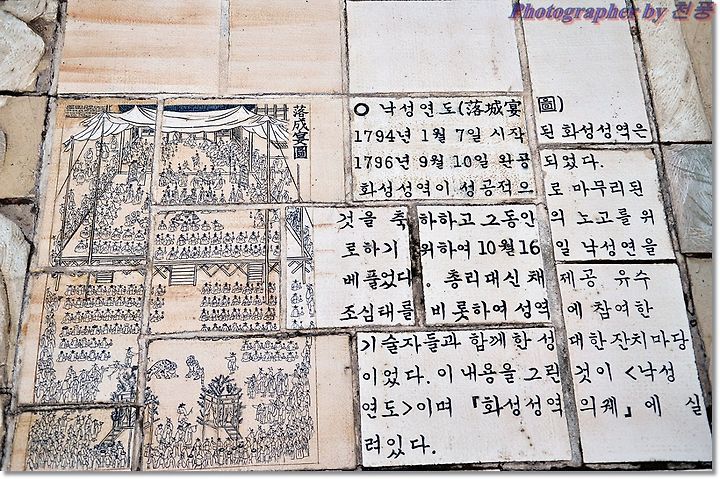 Photographer by 천풍
落成宴圖
○ 낙성연도(落城宴圖)
1794년 1월 7일 시작된 화성성역은
1796년 9월 10일 완공되었다.
화성성역이 성공적으로 마무리된
것을 축하하고 그동안의 노고를 위
로하기 위하여 10월 16일 낙성연을
베풀었다. 총리대신 채제공 유수
조심태를 비롯하여 성역에 참여한
기술자들과 함께 한 성대한 잔치마당
이었다. 이 내용을 그린 것이 <낙성
연도>이며 『화성성역의궤』에 실
려있다.